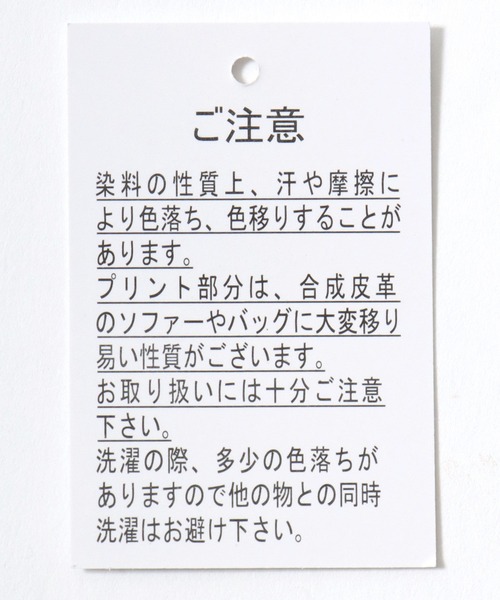 ご注意
染料の性質上、汗や摩擦に
より色落ち、色移りすることが
あります。
プリント部分は、合成皮革
のソファーやバッグに大変移り
易い性質がございます。
お取り扱いには十分ご注意
下さい。
洗濯の際、多少の色落ちが
ありますので他の物との同時
洗濯はお避け下さい。